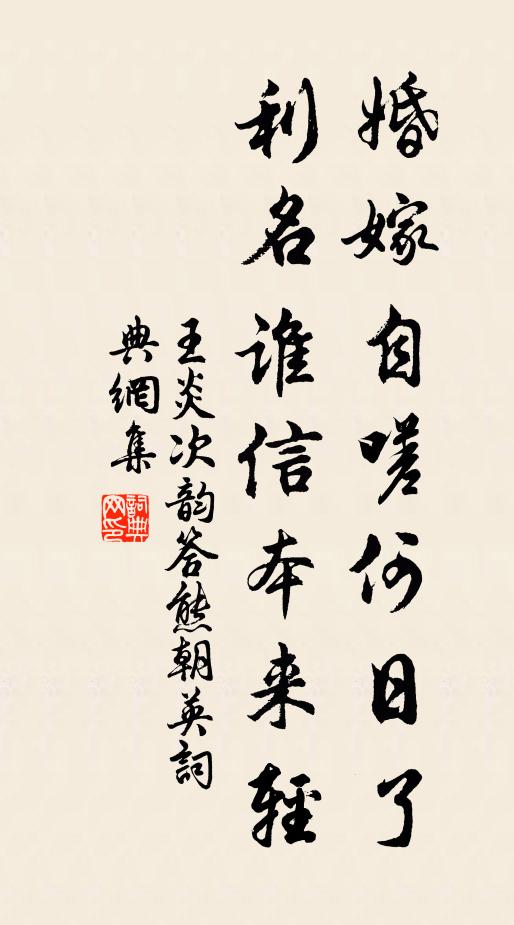 婚嫁自嗟何日了
利名谁信本来輕
王炎次韵答熊朝英詞
典網集
詞典网印